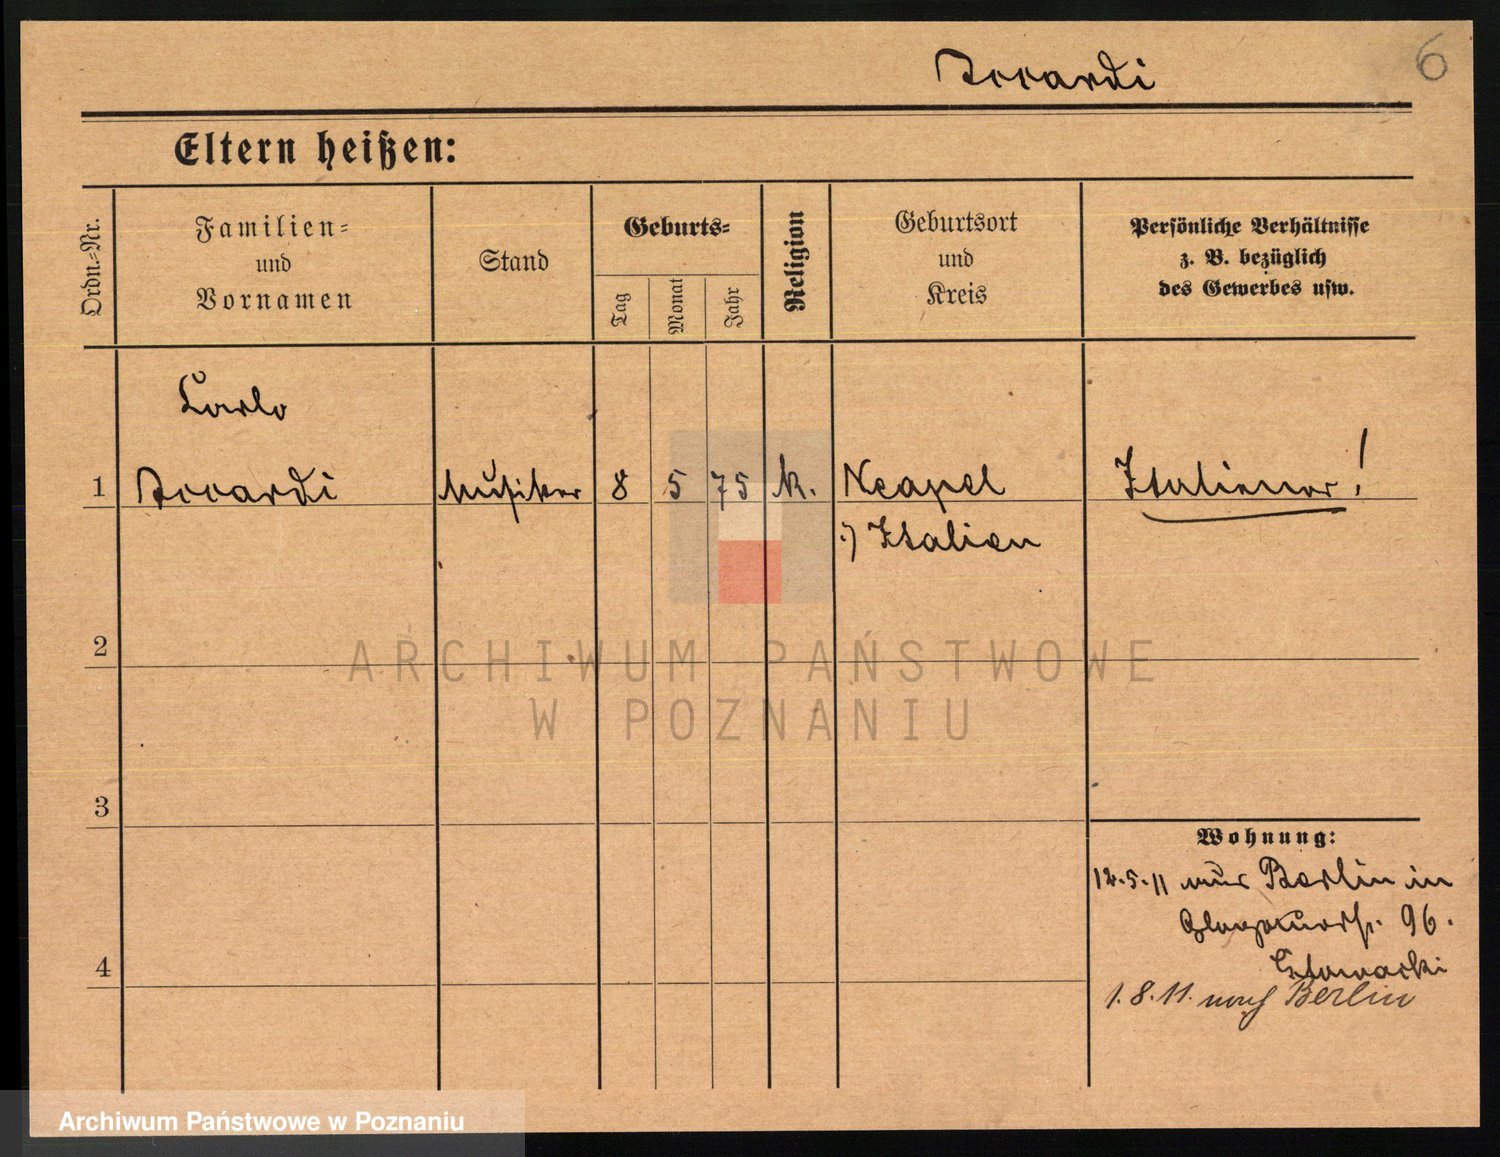 Accardi
6
Eltern heißen:
Ordn.-Nr.
Familien-
und
Vornamen
Stand
Geburts-
Tag
Monat
Jahr
Religion
Geburtsort
und
Kreis
Persönliche Verhältnisse
z. B. bezüglich
des Gewerbes usw.
Carlo
1 Accardi Musiker 8 5 75 k. Neapel Italiener!
:) Italien
2
ARCHIWUM PAŃSTWOWE
W POZNANIU
3
Wohnung:
12.5.11 aus Berlin in
96.
4
1.8.11. nach Berlin
Archiwum Państwowe w Poznaniu